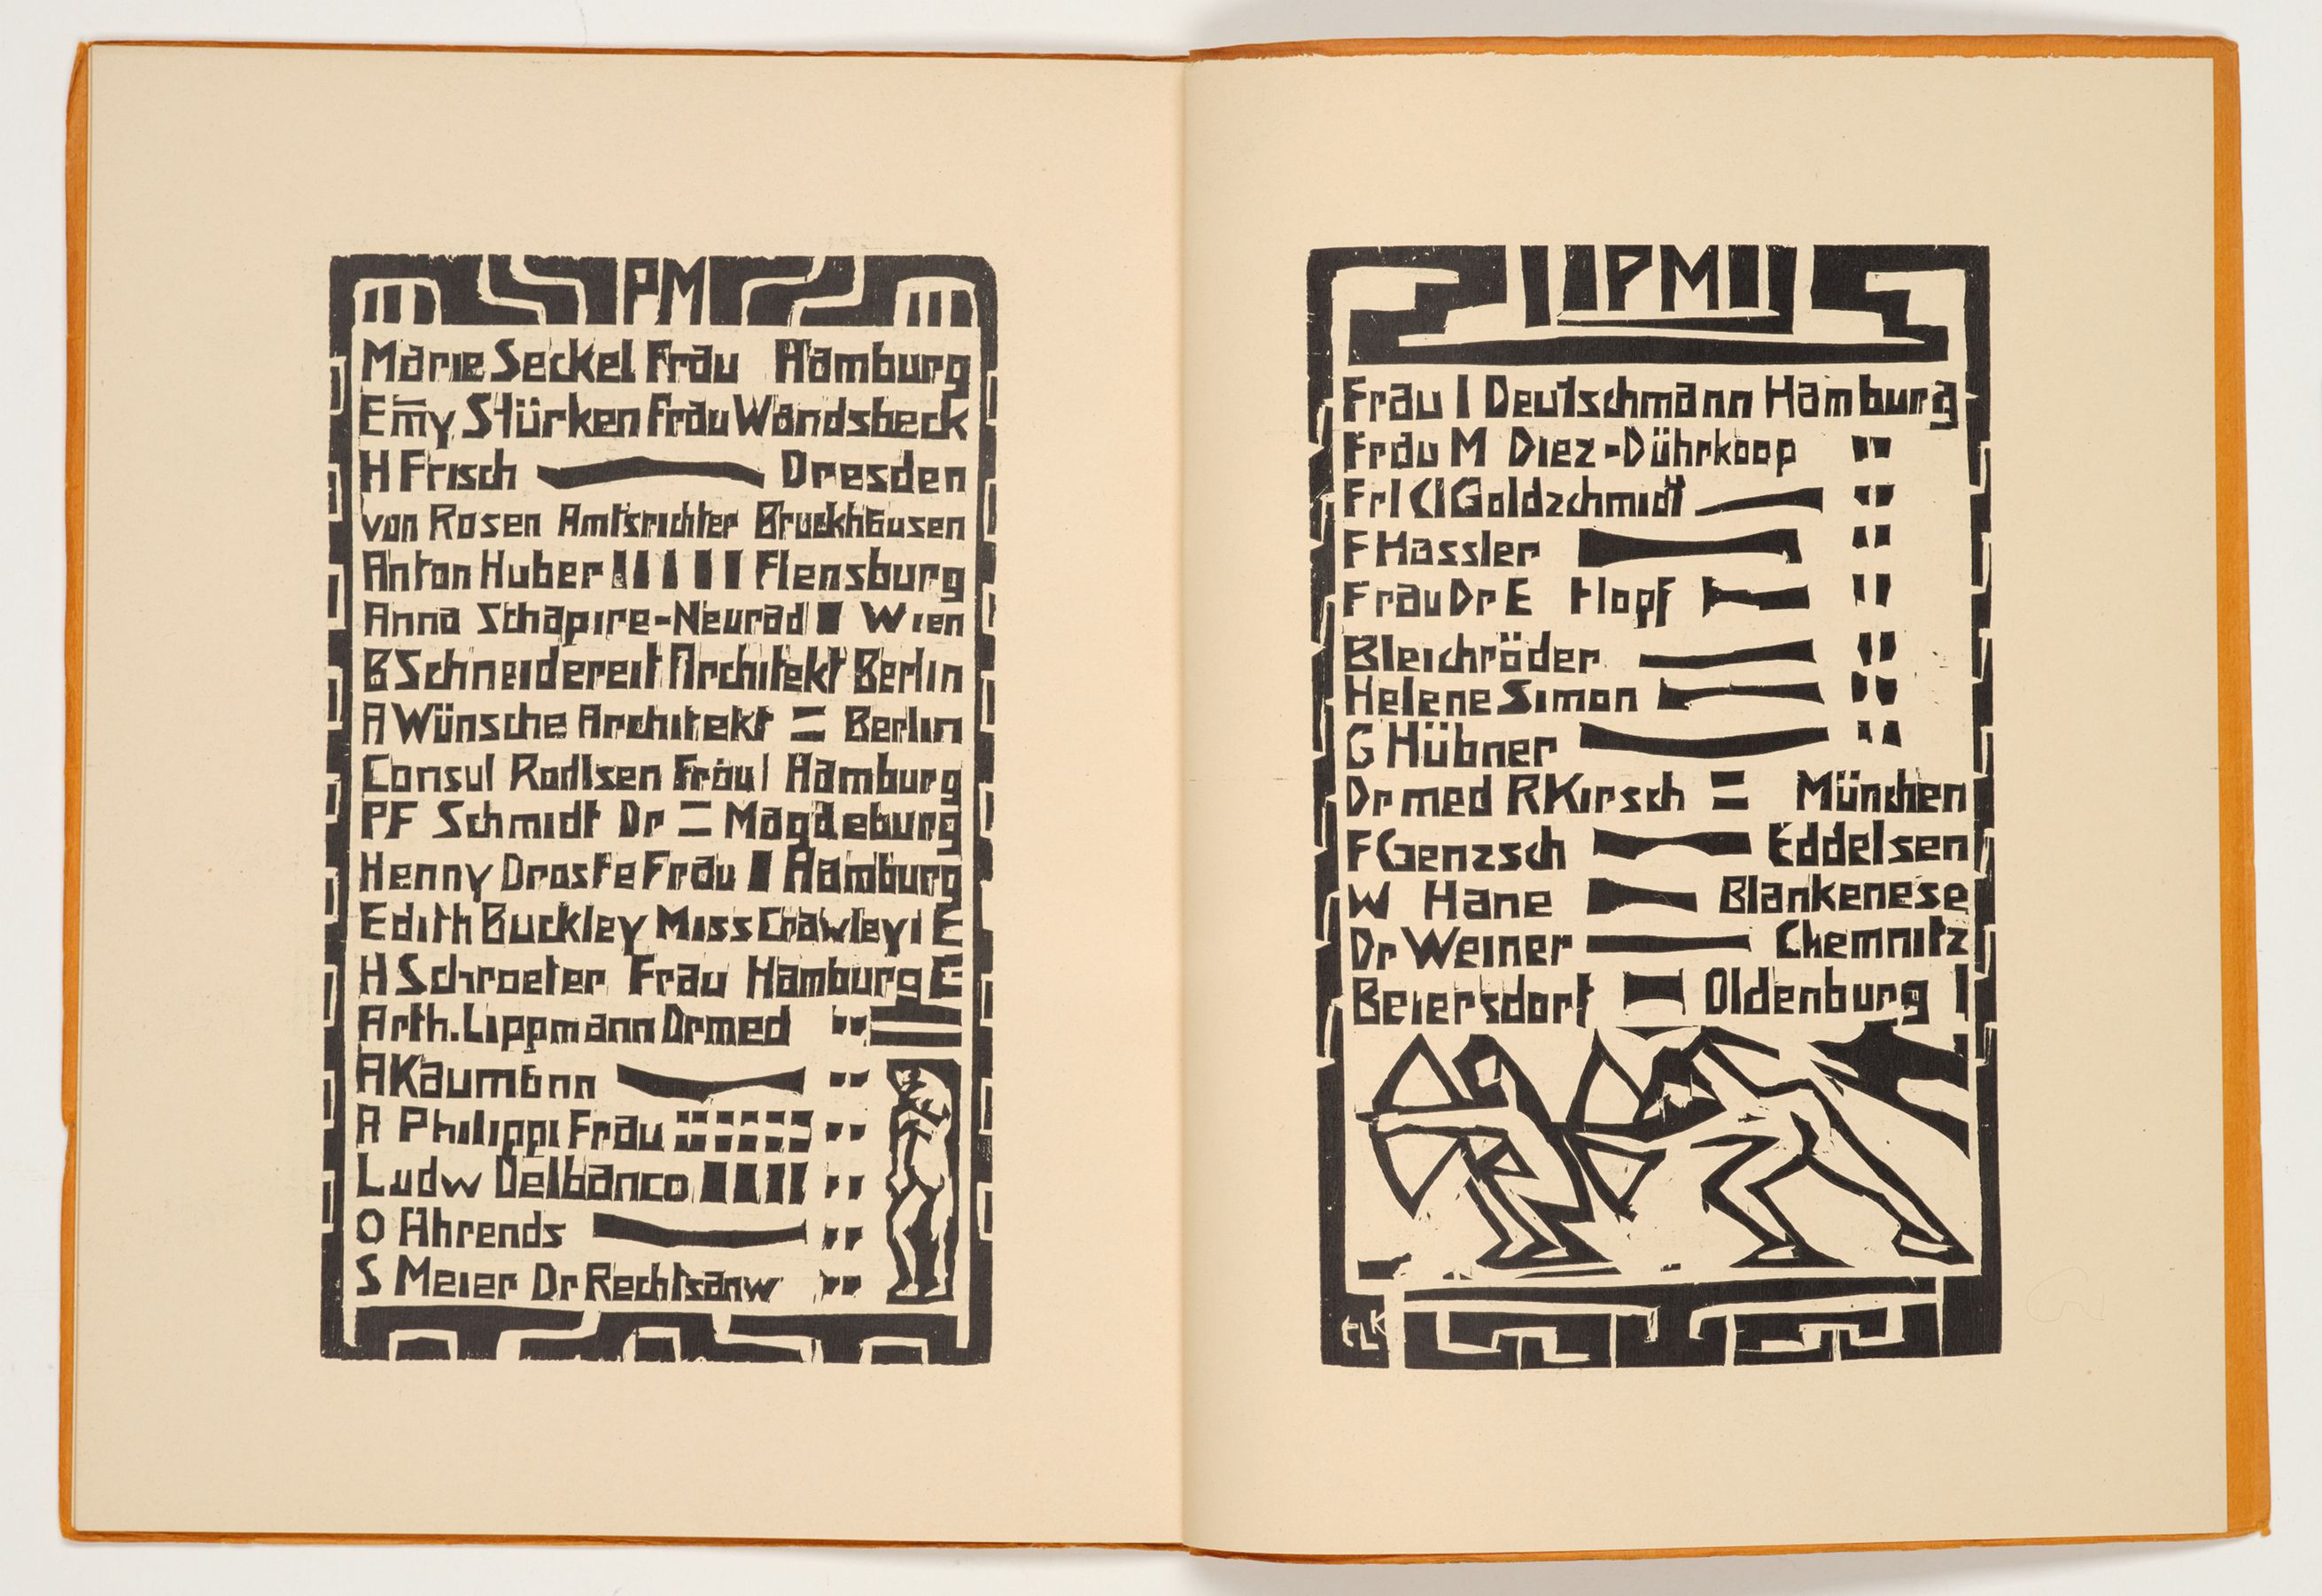 PM
Marie Seckel Frau Hamburg
Em̅y Stürken Frau Wandsbeck
H Frisch Dresden
von Rosen Amtsrichter Bruckhausen
Anton Huber Flensburg
Anna Schapire-Neurad Wien
B Schneidereit Architekt Berlin
A Wünsche Architekt Berlin
Consul Radlsen Frau Hamburg
PF Schmidt Dr Magdeburg
Henny Droste Frau Hamburg
Edith Buckley Miss Crawley E
H Schroeter Frau Hamburg E
Arth. Lippmann Dr med "
A Kaumann "
A Philippi Frau "
Ludw Delbanco "
O Ahrends "
S Meier Dr Rechtsanw "
PM
Frau I Deutschmann Hamburg
Frau M Diez-Dührkoop "
Frl Cl Goldzchmidt "
F Hassler "
Frau Dr E Hopf "
Bleichröder "
Helene Simon "
G Hübner "
Dr med R Kirsch München
F Genzsch Eddelsen
W Hane Blankenese
Dr Weiner Chemnitz
Beiersdorf Oldenburg
ELK